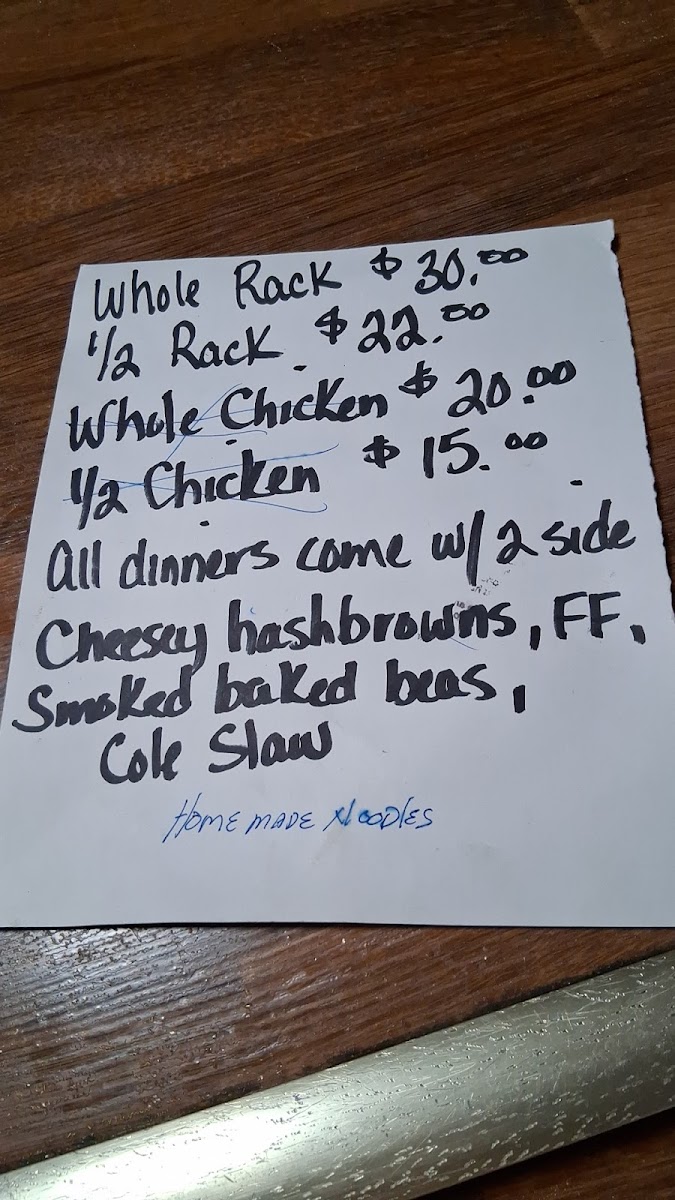 Whole Rack $30.00
1/2 Rack $22.00
Whole Chicken $20.00
1/2 Chicken $15.00
All dinners come w/ 2 side
Cheesey hashbrowns, FF,
Smoked baked beas,
Cole Slaw
HOMEMADE NOODLES